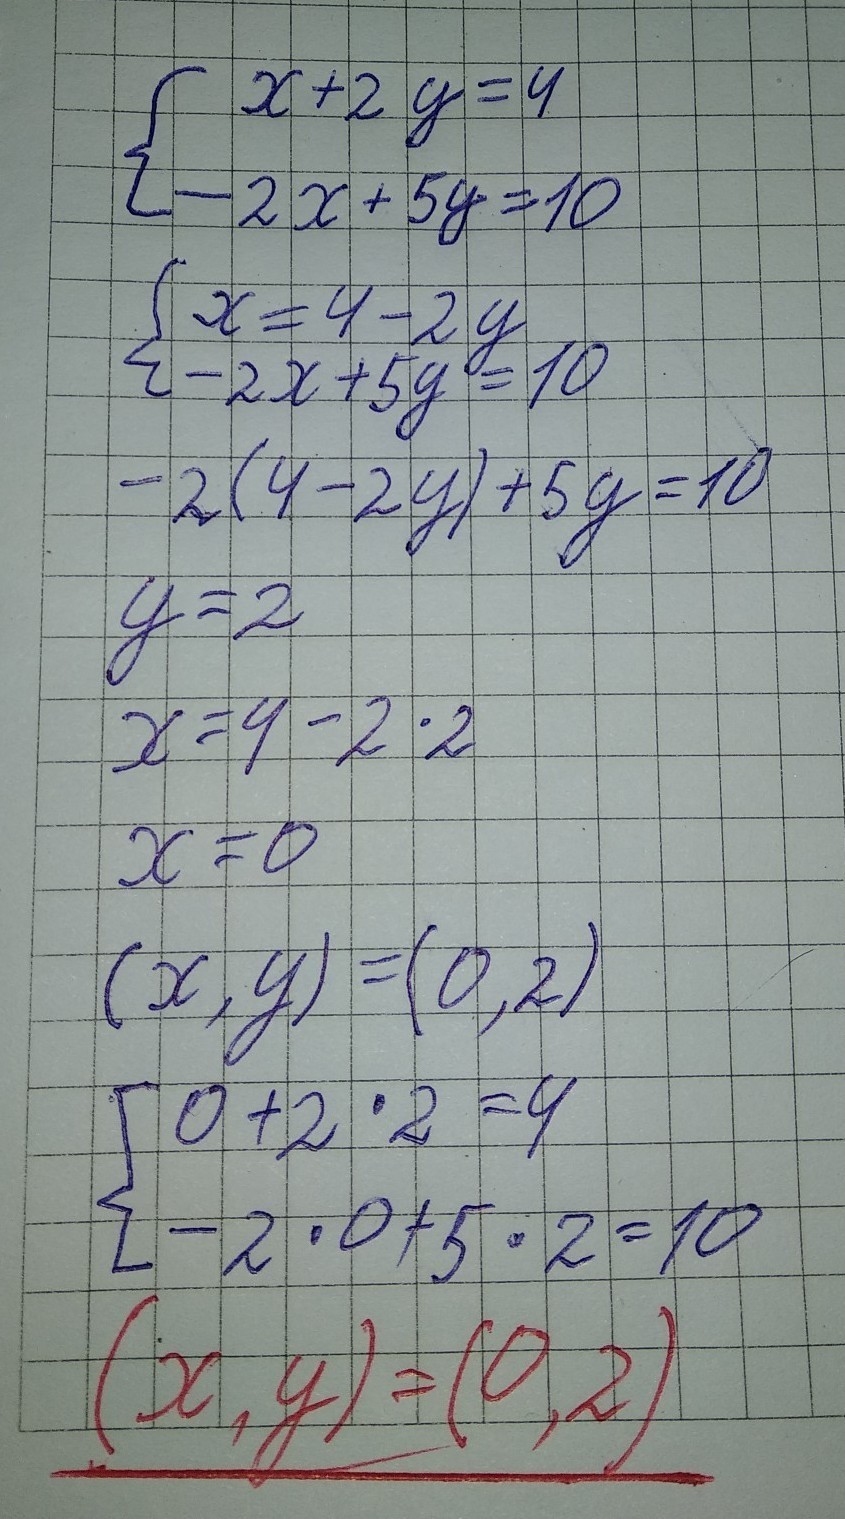 x+2y=4
-2x+5y=10
x=4-2y
-2x+5y=10
-2(4-2y)+5y=10
y=2
x=4-2·2
x=0
(x,y)=(0,2)
0+2·2=4
-2·0+5·2=10
(x,y)=(0,2)